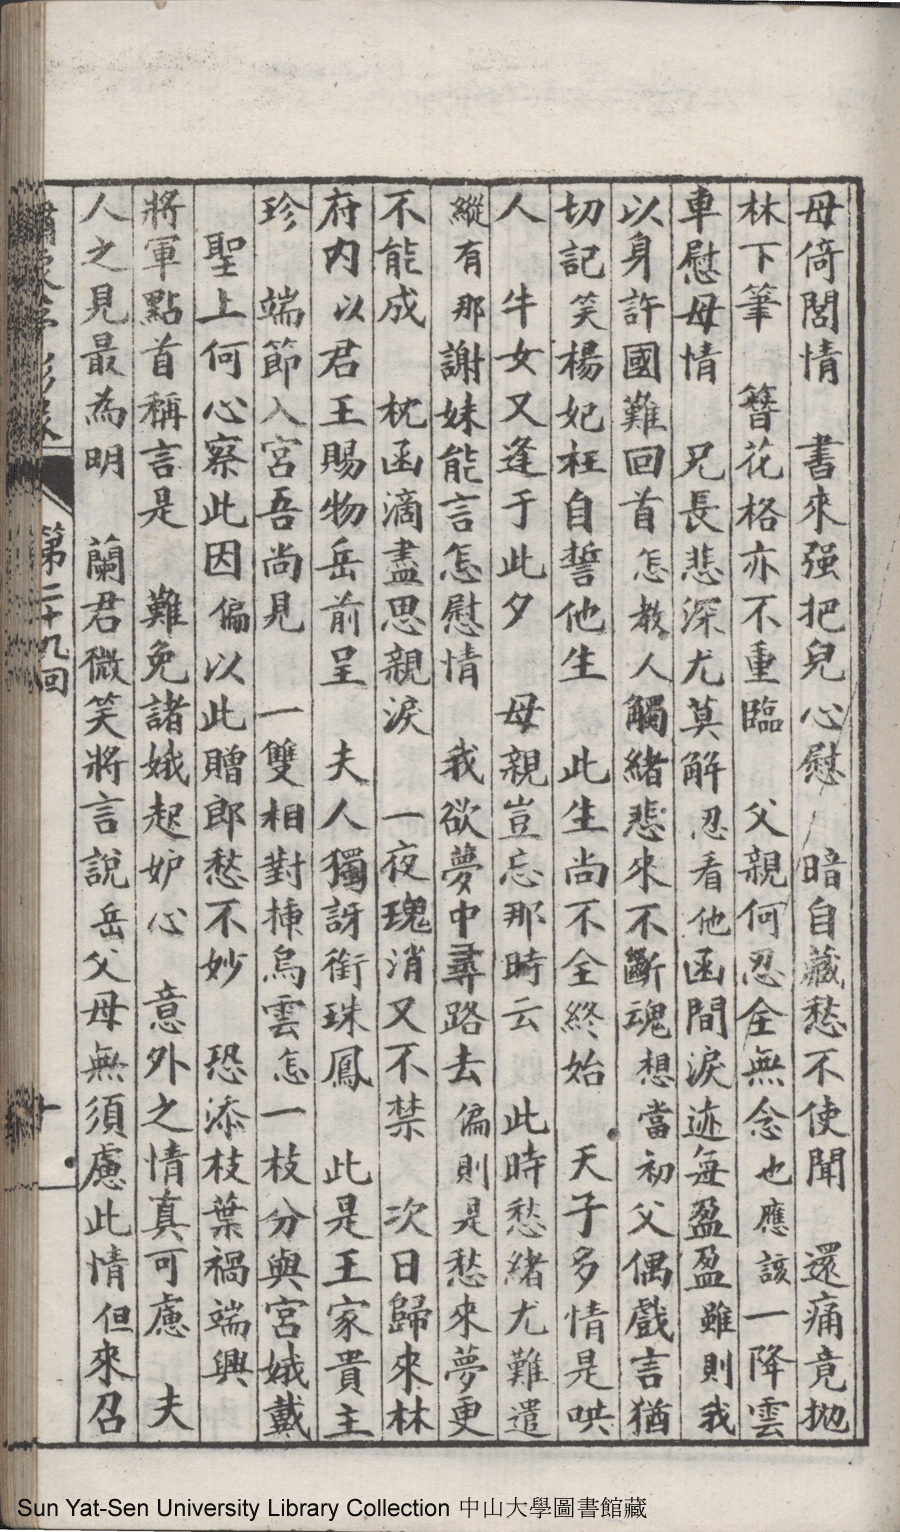 母倚閭情　書來强把兒心慰　暗自藏愁不使聞　還痛竟拋
林下筆　簪花格亦不重臨　父親何忍全無念也應該一降雲
車慰母情　兄長悲深尤莫解忍看他函間淚迹每盈盈雖則我
以身許國難回首怎教人觸緒悲來不斷魂想當初父偶戲言猶
切記笑楊妃枉自誓他生　此生尚不全終始　天子多情是哄
人　牛女又逢于此夕　母親豈忘那時云　此時愁緒尤難遣
縱有那謝妹能言怎慰情　我欲夢中尋路去偏則是愁來夢更
不能成　枕函滴盡思親淚　一夜瑰消又不禁　次日歸來林
府内以君王賜物岳前呈　夫人獨訝銜珠鳳　此是王家貴主
珍　端節入宮吾尚見　一雙相對揷烏雲怎一枝分與宮娥戴
聖上何心察此因偏以此贈郎愁不妙　恐添枝葉禍端興
將軍點首稱言是　難免諸娥起妒心　意外之情真可慮　夫
人之見最為明　蘭君微笑將言說岳父母無須慮此情但來召
第二十九回
十
Sun Yat-Sen University Library Collection 中山大學圖書館藏